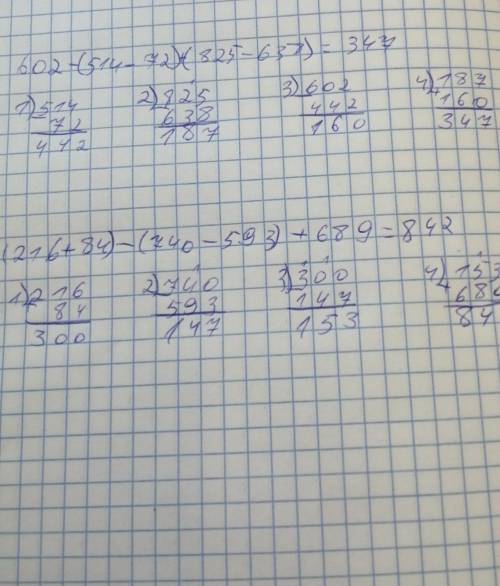 602-(514-72)+(825-638)= 347
1) 514 2) 825 3) 602 4) 187
- 72 - 638 - 442 + 160
442 187 160 347
(216+84)-(740-593)+689=842
1) 216 2) 740 3) 300 4) 153
+ 84 - 593 - 147 + 689
300 147 153 84